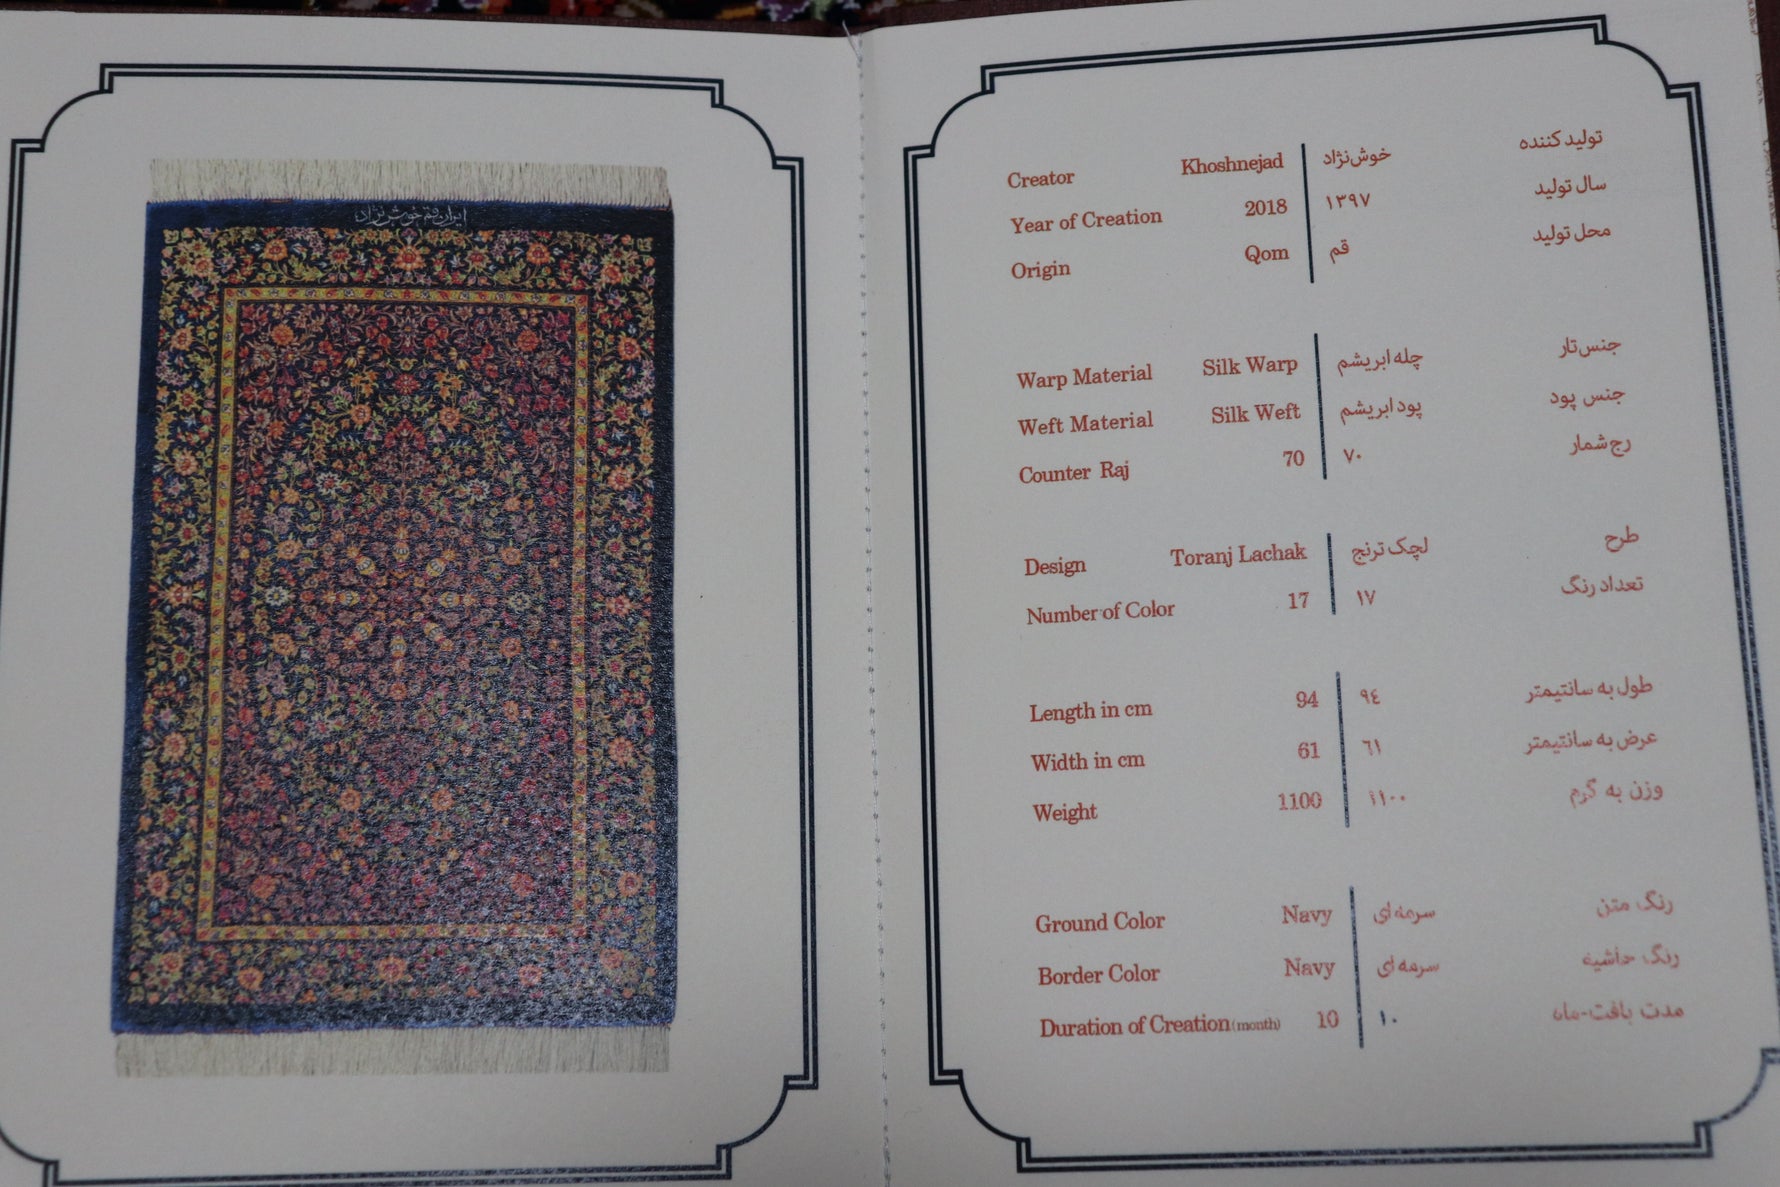 ایران قم خوش نژاد
Creator Khoshnejad خوش‌نژاد تولید کننده
Year of Creation 2018 ۱۳۹۷ سال تولید
Origin Qom قم محل تولید
Warp Material Silk Warp چله ابریشم جنس تار
Weft Material Silk Weft پود ابریشم جنس پود
Counter Raj 70 ۷۰ رج شمار
Design Toranj Lachak لچک ترنج طرح
Number of Color 17 ۱۷ تعداد رنگ
Length in cm 94 ۹٤ طول به سانتیمتر
Width in cm 61 ٦۱ عرض به سانتیمتر
Weight 1100 ۱۱۰۰ وزن به گرم
Ground Color Navy سرمه ای رنگ متن
Border Color Navy سرمه ای رنگ حاشیه
Duration of Creation (month) 10 ۱۰ مدت بافت-ماه